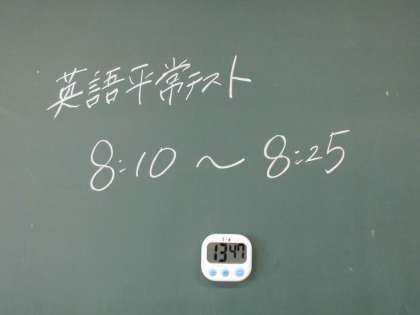 英語平常テスト
8:10 〜 8:25
13 47